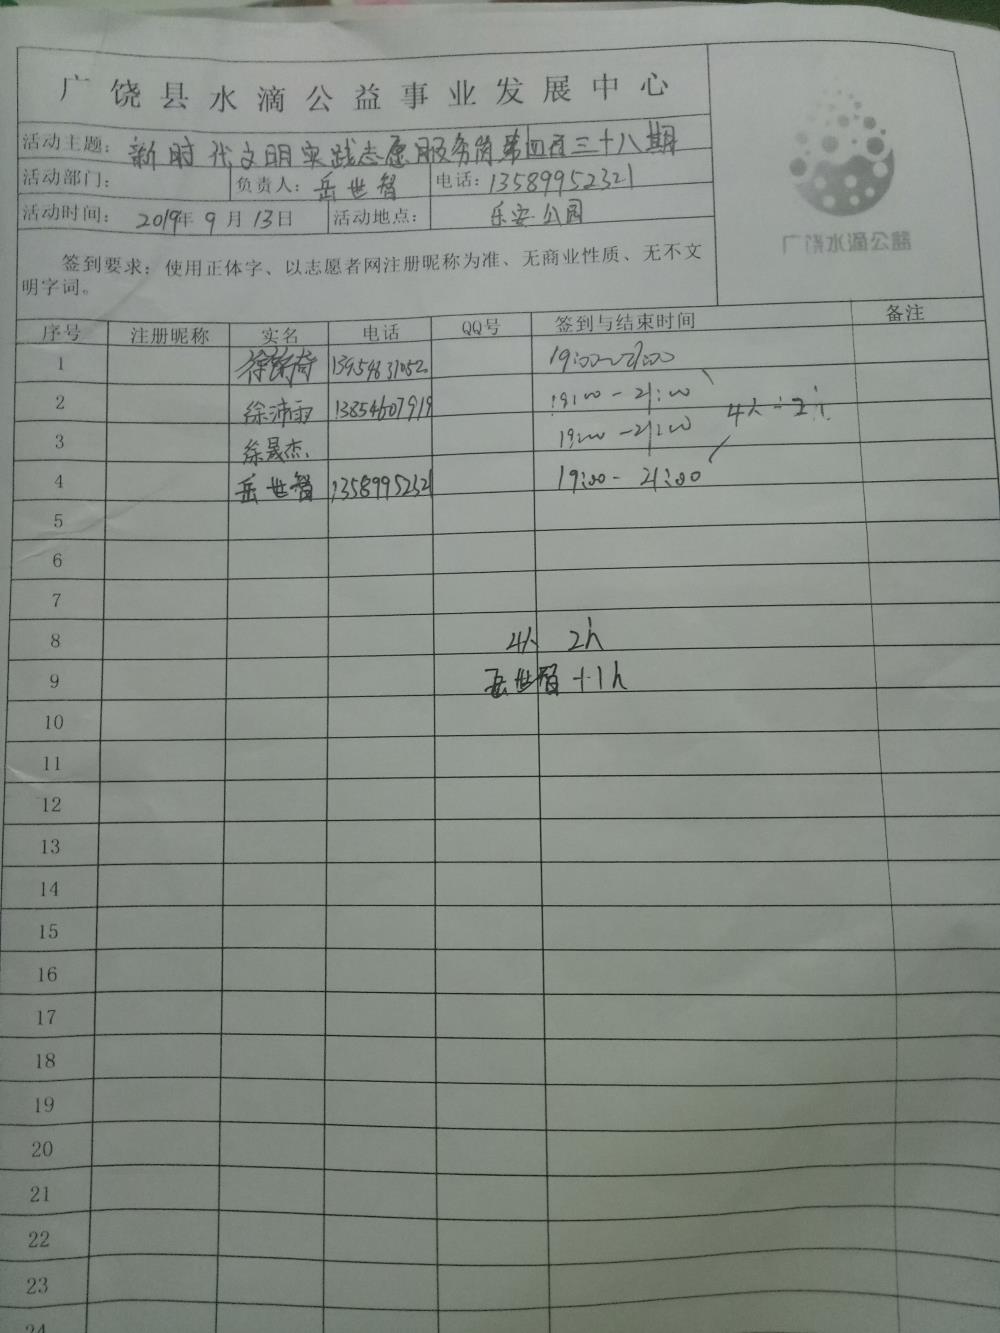 广饶县水滴公益事业发展中心
活动主题：新时代文明实践志愿服务岗第四百三十八期
活动部门： 负责人：岳世智 电话：13589952321
活动时间：2019年9月13日 活动地点： 乐安公园
广饶水滴公益
签到要求：使用正体字、以志愿者网注册昵称为准、无商业性质、无不文
明字词。
序号 注册昵称 实名 电话 QQ号 签到与结束时间 备注
1 13954631052 19:00-21:00
2 徐沛雨 13854607919 19:00-21:00
4人 2h
3 徐晟杰 19:00-21:00
4 岳世智 13589952321 19:00-21:00
5
6
7
8 4人 2h
9 岳世智+1h
10
11
12
13
14
15
16
17
18
19
20
21
22
23
24